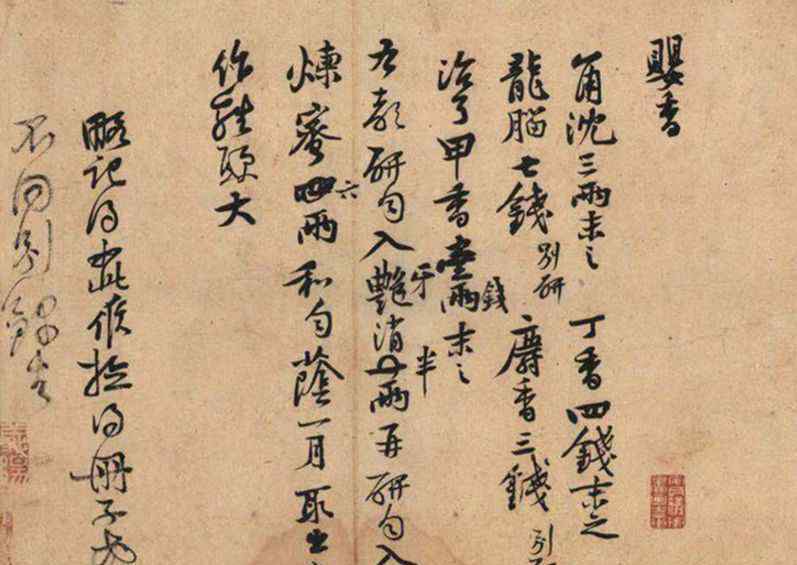 嬰香
角沈三兩末之 丁香四錢末之
龍腦七錢別研 麝香三錢別研
治了甲香壹兩錢末之
右都研勻入艷消半兩再研勻入牙半
煉蜜四兩六和勻蔭一月取出
作雞頭大
略記得此候檢得冊子或
不同別